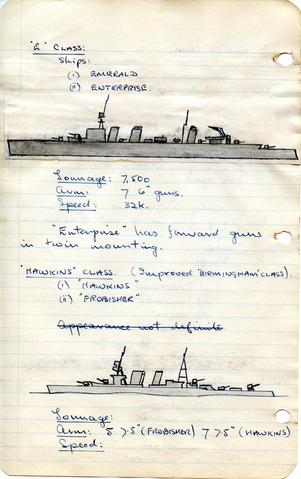 "E" CLASS:
Ships:
(i) EMERALD
(ii) ENTERPRISE.
Tonnage: 7,500
Arm: 7 6" guns.
Speed: 32k.
"Enterprise" has forward guns
in twin mounting.
"HAWKINS" CLASS. (Improved "BIRMINGHAM" CLASS).
(i) "HAWKINS"
(ii) "FROBISHER"
Appearance not definite
Tonnage:
Arm: 5 7.5" (FROBISHER) 7 7.5" (HAWKINS)
Speed: